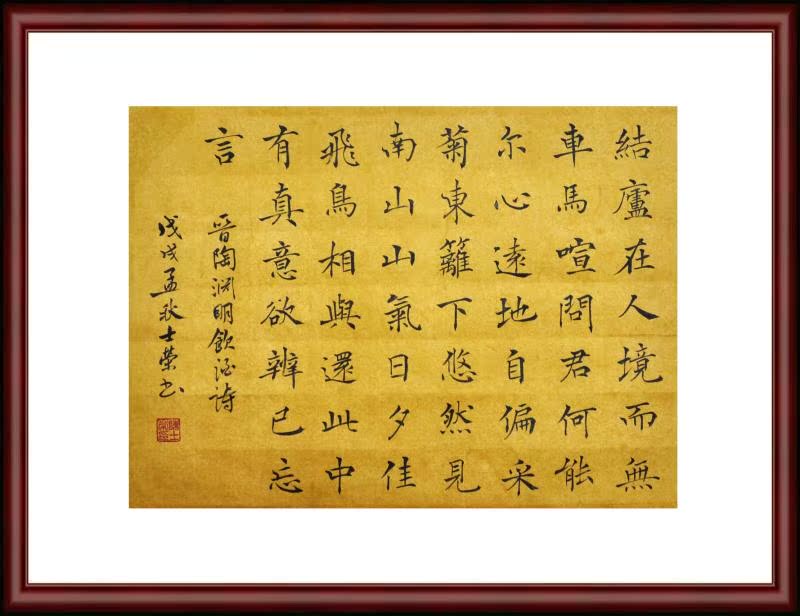 結廬在人境而無
車馬喧問君何能
尔心遠地自偏采
菊東籬下悠然見
南山山氣日夕佳
飛鳥相與還此中
有真意欲辨已忘
言
晉陶渊明飲酒詩
戊戌孟秋士榮书